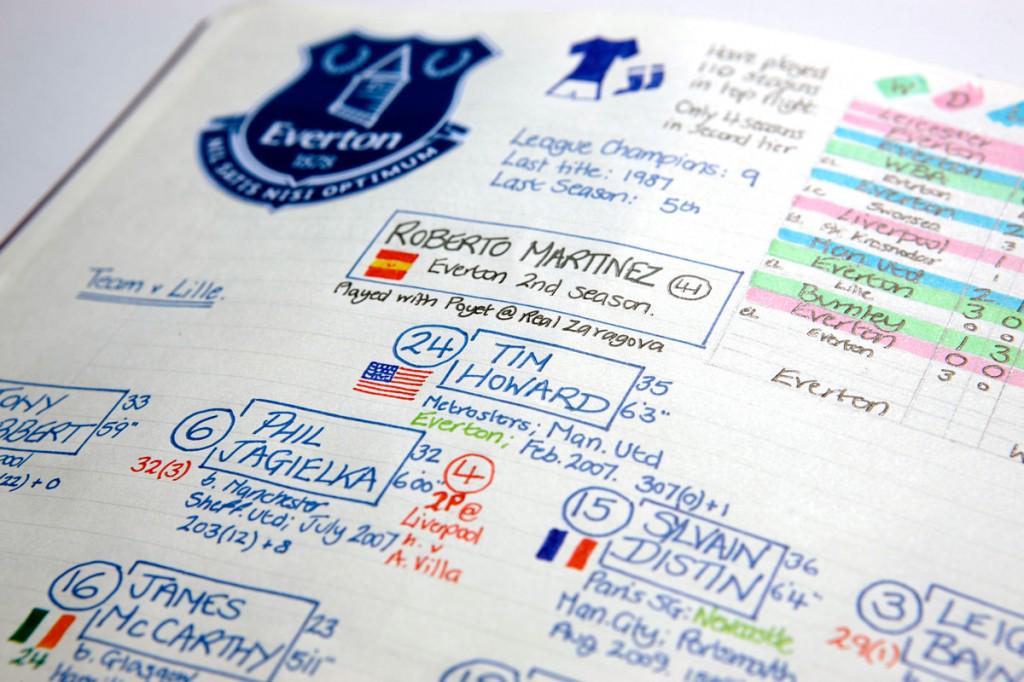 Everton
1878
NIL SATIS NISI OPTIMUM
Have played
110 seasons
in top flight
Only 4 seasons
in second tier
League Champions: 9
Last title: 1987
Last Season: 5th
W D
ROBERTO MARTINEZ 41
Everton 2nd season.
Played with Poyet @ Real Zaragova
Team v Lille.
24 TIM
HOWARD
35
6'3"
Metrostars; Man. Utd
Everton; Feb. 2007.
307(0)+1
ONY
BBERT
33
5'9"
ool
22)+0
6 PHIL
JAGIELKA
32
6'00"
32(3)
b. Manchester
Sheff. Utd; July 2007
203(12)+8
4
2P@
Liverpool
n. v
A. Villa
15 SYLVAIN
DISTIN
36
6'4"
Paris SG; Newcastle
Man. City; Portsmouth
Aug 2009.
16 JAMES
McCARTHY
23
5'11"
24
b. Glasgow
3 LEIG
BAIN
29(1)
Leicester
Everton
Everton
WBA
Everton
Everton
Swansea
Liverpool
Everton
FK Krasnodar
Man Utd 2 1
Everton 3 0
Lille
Burnley 1 3
Everton 0 0
EL Everton 3 0
Everton